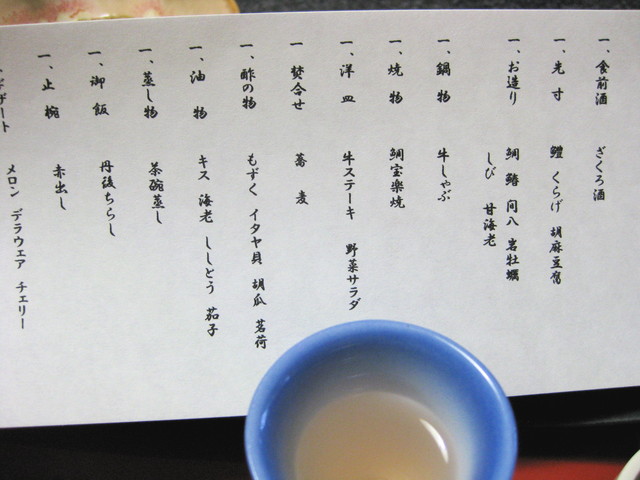 一、食前酒 ざくろ酒
一、先寸 鱧 くらげ 胡麻豆腐
一、お造り 鯛 鮪 間八 岩牡蠣
しび 甘海老
一、鍋物 牛しゃぶ
一、焼物 鯛宝楽焼
一、洋皿 牛ステーキ 野菜サラダ
一 焚合せ 蕎麦
一、酢の物 もずく イタヤ貝 胡瓜 茗荷
一、油物 キス 海老 ししとう 茄子
一、蒸し物 茶碗蒸し
一、御飯 丹後ちらし
一、止椀 赤出し
デザート メロン デラウェア チェリー